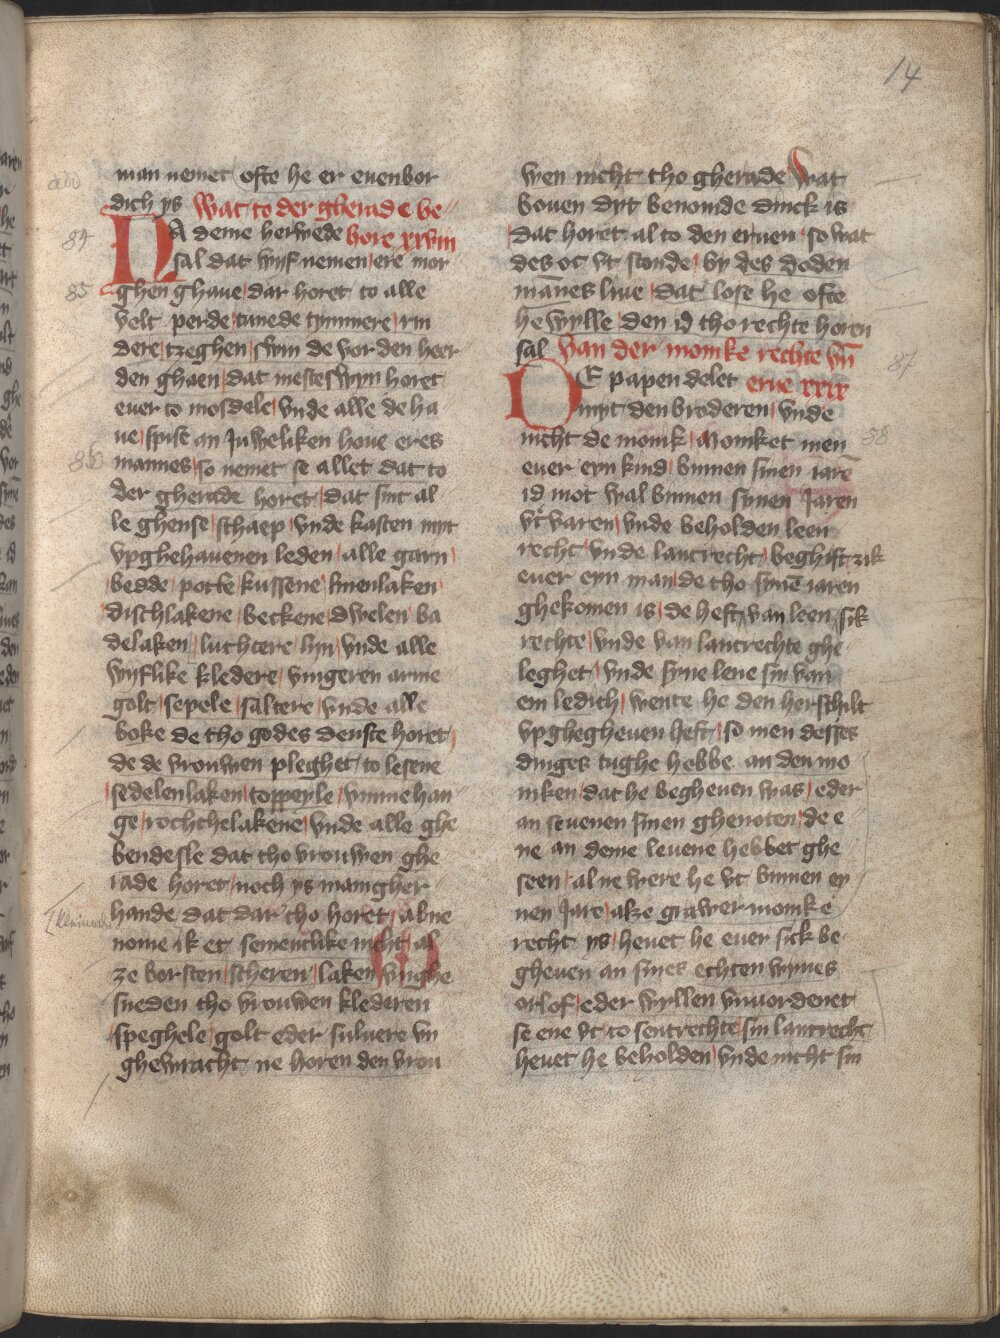 14
man nemet ofte he er euenbor
dich ys Wat to der gherade be
84
NA deme herwede bore xxviii
sal dat wyf nemen ere mor
85
ghen ghaue dar horet to alle
velt perde tunede tymmere rin
dere tzeghen swin de vor den heer
den ghaen dat mesteswyn horet
euer to mosdele vnde alle de ha
ue spise an Juweliken houe eres
86
mannes so nemet se allet dat to
der gherade horet dat sint al
le ghense schaep vnde kasten myt
vpghehauenen leden alle garn
bedde potte kussene linenlaken
dischlakene beckene dwelen ba
delaken luchtere lyn vnde alle
wyflike kledere vingeren arme
golt sepele saltere vnde alle
boke de tho godes denste horet
de de vrouwen pleghet to lesene
sedelen laken toppeyle vmmehan
ge rochchelakene vnde alle ghe
bendesle dat tho vrouwen ghe
rade horet noch ys manigher
hande dat dar tho horet alne
nome ik et sementlike nicht al
ze borsten scheren laken vnghe
sneden tho vrouwen klederen
speghele golt eder suluere vn
ghewracht ne horen den vrou
wen nicht tho gherade Wat
bouen dyt benomde dinck is
dat horet al to den eruen so wat
des oc vt stonde by des doden
mānes liue dat lose he ofte
he wylle den id tho rechte horen
sal Van der monke rechte vn̄
87
DE papen delet erue xxix
myt den broderen vnde
88
nicht de monk Monket men
euer eyn kind binnen sinen iarē
id mot wal binnen synen Jaren
vt varen vnde beholden leen
recht vnde lantrecht beghift zik
euer eyn man de tho sinē iaren
ghekomen is de heft van leen sik
rechte vnde van lantrechte ghe
leghet vnde syne lene sin van
em ledich wente he den herschilt
vpghegheuen heft so men desses
dinges tughe hebbe an den mo
niken dat he begheuen was eder
an seuenen sinen ghenoten de e
ne an deme leuene hebbet ghe
seen al ne were he vt binnen ey
nen Jare alze grawer monke
recht ys heuet he euer sick be
gheuen an sines echten wyues
orlof eder wyllen vnuordenet
se ene vt to sentrechte sin lantrecht
heuet he beholden vnde nicht sin